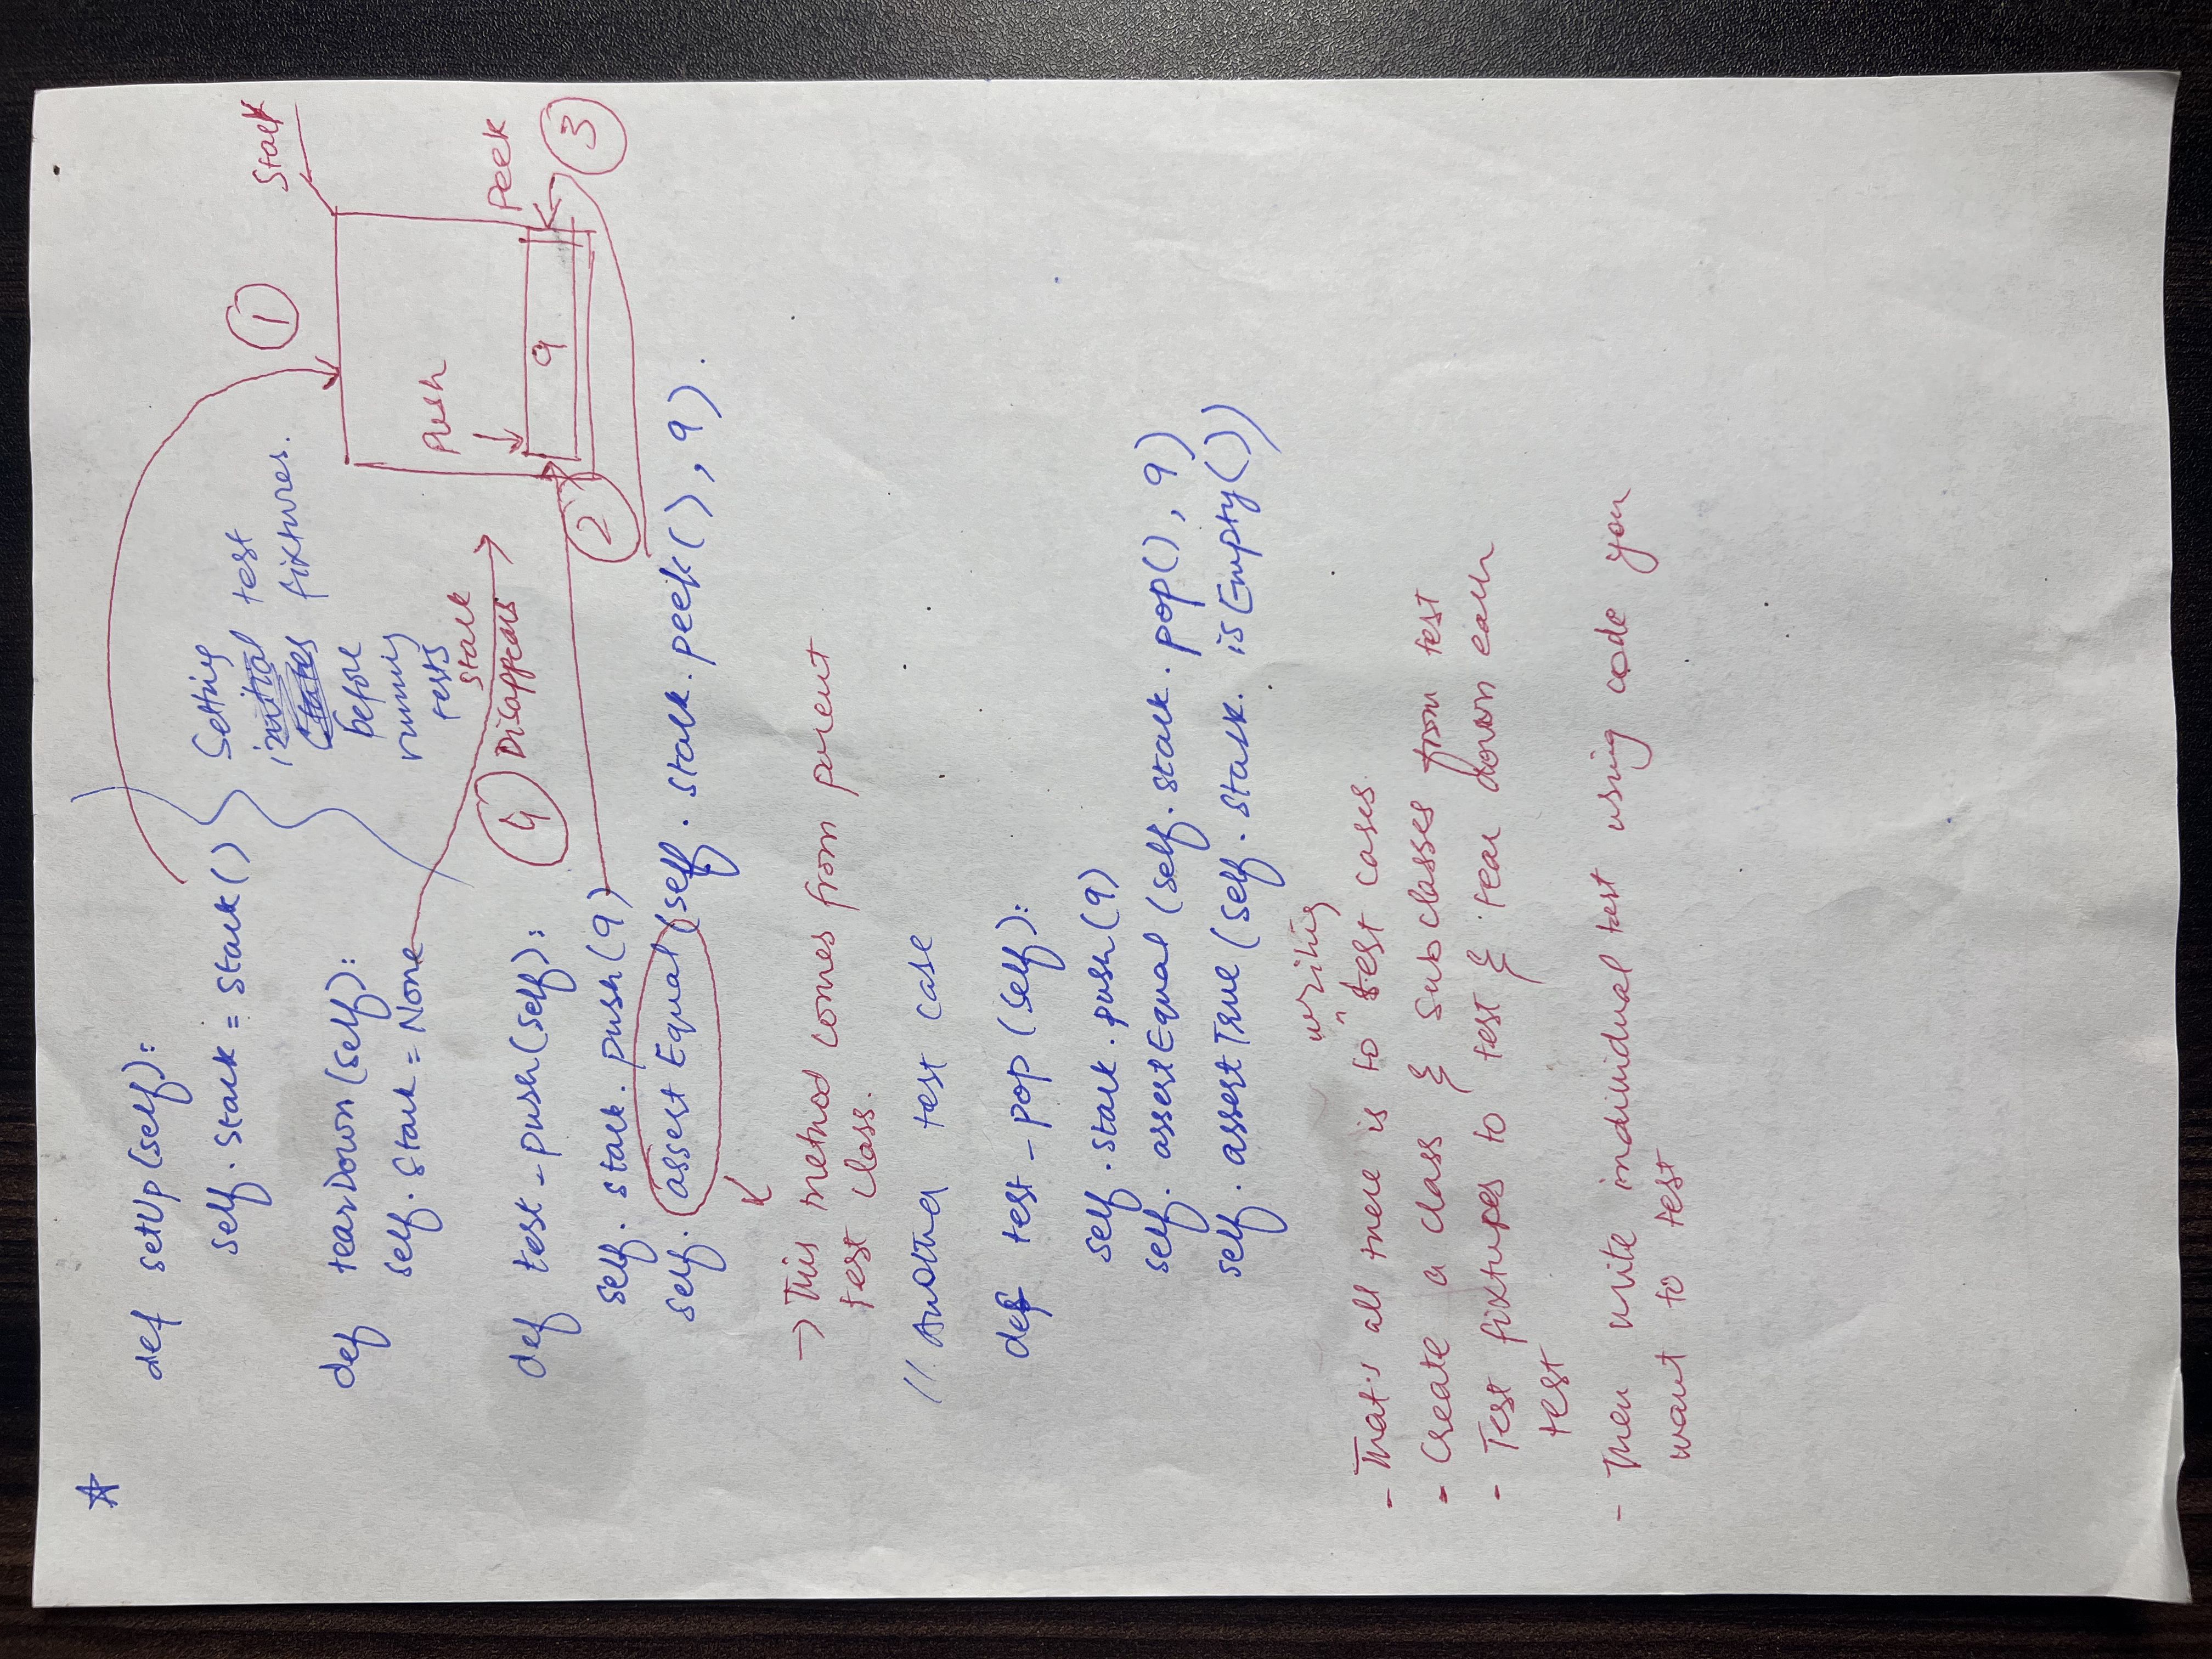 ☆
def setUp(self):
self.stack = stack()
Setting
initial test
states fixtures.
before
running
tests
①
stack
def tearDown(self):
self.stack = None
④ stack
Disappears
push
9
peek
②
③
def test_push(self):
self.stack.push(9)
self.assertEqual(self.stack.peek(), 9).
→ This method comes from parent
test class.
// Another test case
def test_pop(self):
self.stack.push(9)
self.assertEqual(self.stack.pop(), 9)
self.assertTrue(self.stack.isEmpty())
writing
- That's all there is to ^ test cases.
- Create a class & Subclasses from test
- Test fixtupes to test & tear down each
test
- Then write individual test using code you
want to test